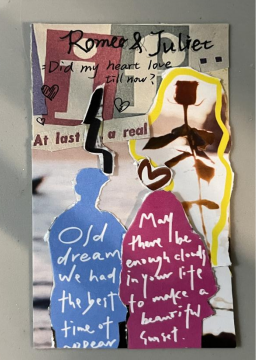 Romeo & Juliet
Did my heart love
till now?
At last a real
Old
dream
we had
the best
time of
appear
May
there be
enough clouds
in your life
to make a
beautiful
sunset.